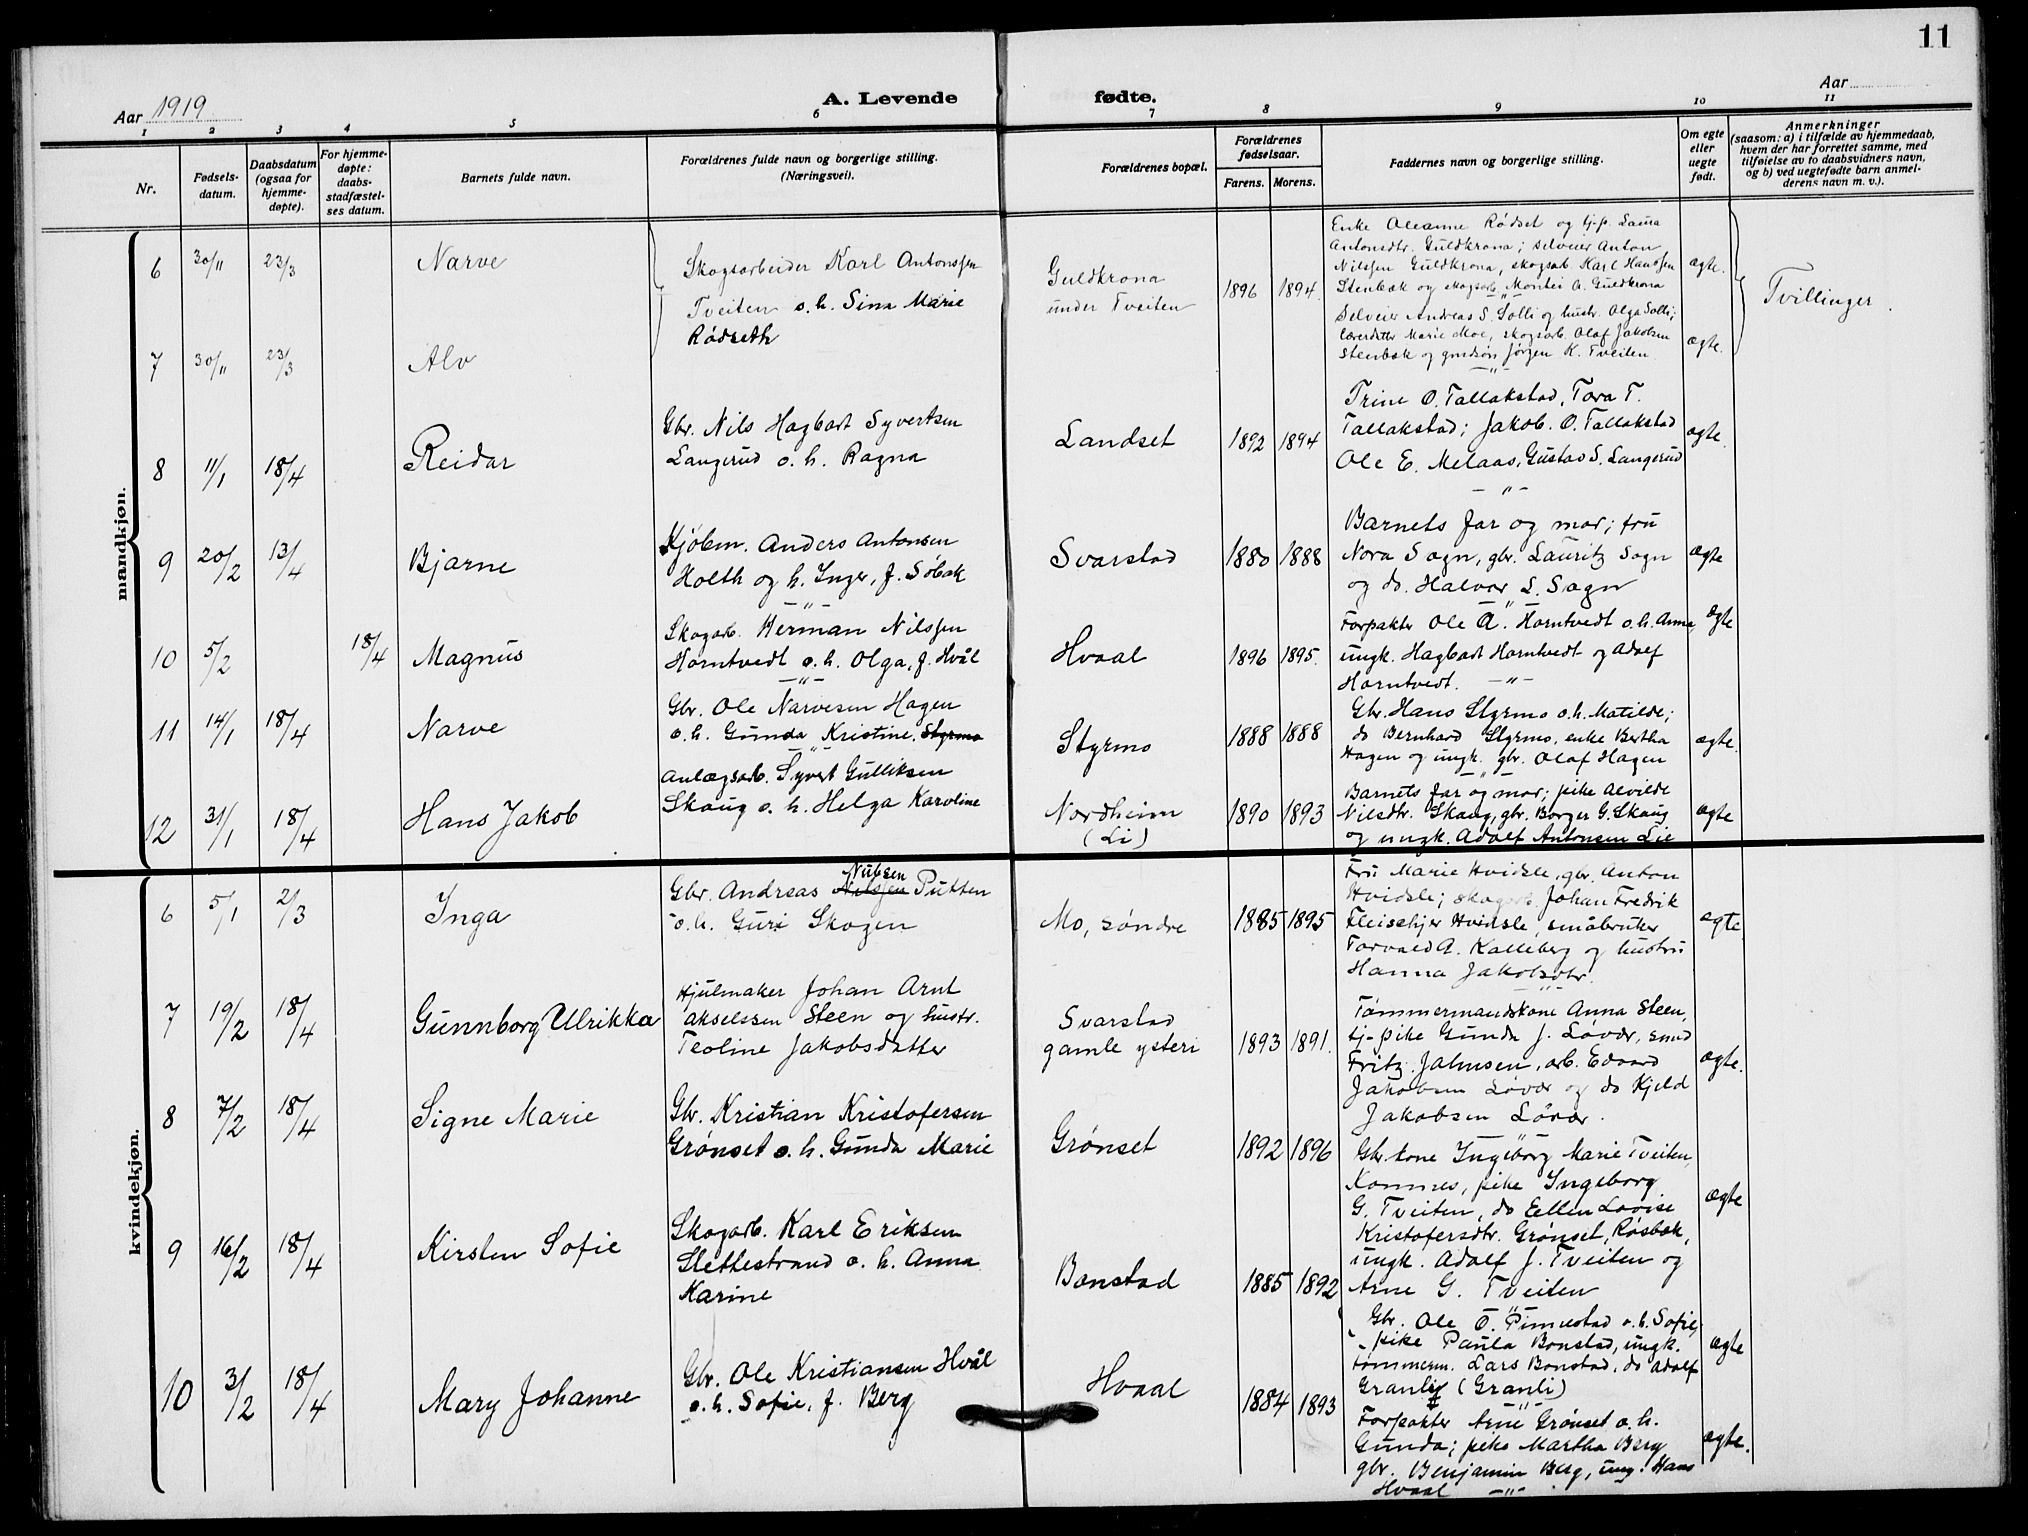 11
Aar 1919
A. Levende fødte.
Aar
1 2 3 4 5 6 7 8 9 10 11
Nr.
Fødsels-
datum.
Daabsdatum
(ogsaa for
hjemme-
døpte).
For hjemme-
døpte:
daabs-
stadfæstel-
ses datum.
Barnets fulde navn.
Forældrenes fulde navn og borgerlige stilling.
(Næringsvei).
Forældrenes bopæl.
Forældrenes
fødselsaar.
Farens. Morens.
Faddernes navn og borgerlige stilling.
Om egte
eller
uegte
født.
Anmerkninger
(saasom: a) i tilfælde av hjemmedaab,
hvem der har forrettet samme, med
tilføielse av to daabsvidners navn,
og b) ved uegtefødte barn anmel-
derens navn m. v.).
mandkjøn.
6 30/11 23/3 Narve
Skogsarbeider Karl Antonssen
Tveiten o.h. Sina Marie
Rødseth
Guldkrona
under Tveiten
1896 1894
Enke Oleanne Rødset og tj.p. Laura
Antonsdtr. Guldkrona; selveier Anton
Nilssen Guldkrona, skogsarb. Karl Hanssen
Stenbæk og skogsarb. Montei A. Guldkrona
ægte.
Tvillinger.
7 30/11 23/3 Alv
Selveier Andreas S. Solli og hustr. Olga Solli;
lærerdatter Marie Moe, skogsarb. Olaf Jakobsen
Steenbæk og grndsøn Jørgen K. Tveiten
ægte.
8 11/1 18/4 Reidar
Gbr. Nils Hagbart Syvertsen
Langerud o. h. Ragna
Landset
1892 1894
Trine O. Tallakstad, Tora T.
Tallakstad; Jakob. O. Tallakstad
Ole E. Melaas, Gustav S. Langerud
ægte.
9 20/2 13/4 Bjarne
Kjöbm. Anders Antonsen
Holth og h. Inger, f. Söbæk
Svarstad
1880 1888
Barnets far og mor; fru
Nora Sogn, gbr. Lauritz Sogn
og do. Halvor L. Sogn
ægte
10 5/2 18/4 Magnus
Skogarb. Herman Nilssen
Horntvedt o. h. Olga, f. Hvål
Hvaal
1896 1895.
Forpakter Ole A. Horntvedt o. h. Anna,
ungk. Hagbart Horntvedt og Adolf
Horntvedt.
ægte
11 14/1 18/4 Narve
Gbr. Ole Narvesen Hagen
o. h. Gunda Kristine. Styrmo
Styrmo
1888 1888
Gbr. Hans Styrmo o. h. Matilde;
do Bernhard Styrmo, enke Bertha
Hagen og ungk. gbr. Olaf Hagen
ægte.
12 31/1 18/4 Hans Jakob
Anlægsarb. Syvert Gulliksen
Skaug o. h. Helga Karoline
Nordheim
(Li)
1890 1893
Barnets far og mor; pike Alvilde
Nilsdtr. Skaug, gbr. Borger G. Skaug
og ungk. Adolf Antonsen Lie
ægte
kvindekjøn.
6 5/1 2/3 Inga
Nubsen
Gbr. Andreas Nilssen Putten
o. h. Guri Skogen
Mo, søndre
1885 1895
Fru Marie Hvidsle, gbr. Anton
Hvidsle; skogarb. Johan Fredrik
Fleischer Hvidsle, småbruker
Torvald A. Kalleberg og hustru
Hanna Jakobsdtr.
ægte
7 19/2 18/4 Gunnborg Ulrikka
Hjulmaker Johan Arnt
Akselssen Steen og hustr.
Teoline Jakobsdatter
Svarstad
gamle ysteri
1893 1891.
Tømmermandskone Anna Steen,
tj-pike Gunda J. Løvær, smed
Fritz Jahnsen, arb. Edvard
Jakobsen Løvær og do Kjeld
Jakobsen Löver.
ægte.
8 7/2 18/4 Signe Marie
Gbr. Kristian Kristofersen
Grønset o. h. Gunda Marie
Grønset
1892 1896
Gbr. kone Ingeborg Marie Tveiten,
Komnes, pike Ingeborg
G. Tveiten, do Eellen Lovise
Kristofersdtr. Grønset, Røsbæk,
ungk. Adolf J. Tveiten og
Arne G. Tveiten
ægte
9 16/2 18/4 Kirsten Sofie
Skogarb. Karl Eriksen
Slettestrand o. h. Anna
Karine
Bonstad
1885 1892
Gbr. Ole O. Pimestad o. h. Sofie,
pike Paula Bonstad, ungk.
tømmerm. Lars Bonstad, do Adolf
Granli (Granli)
ægte
10 3/2 18/4 Mary Johanne
Gbr. Ole Kristiansen Hvål
o. h. Sofie, f. Berg
Hvaal
1884 1893
Forpakter Arne Grønset o. h.
Gunda; pike Martha Berg
gbr. Benjamin Berg, ung. Hans
Hvaal
ægte.